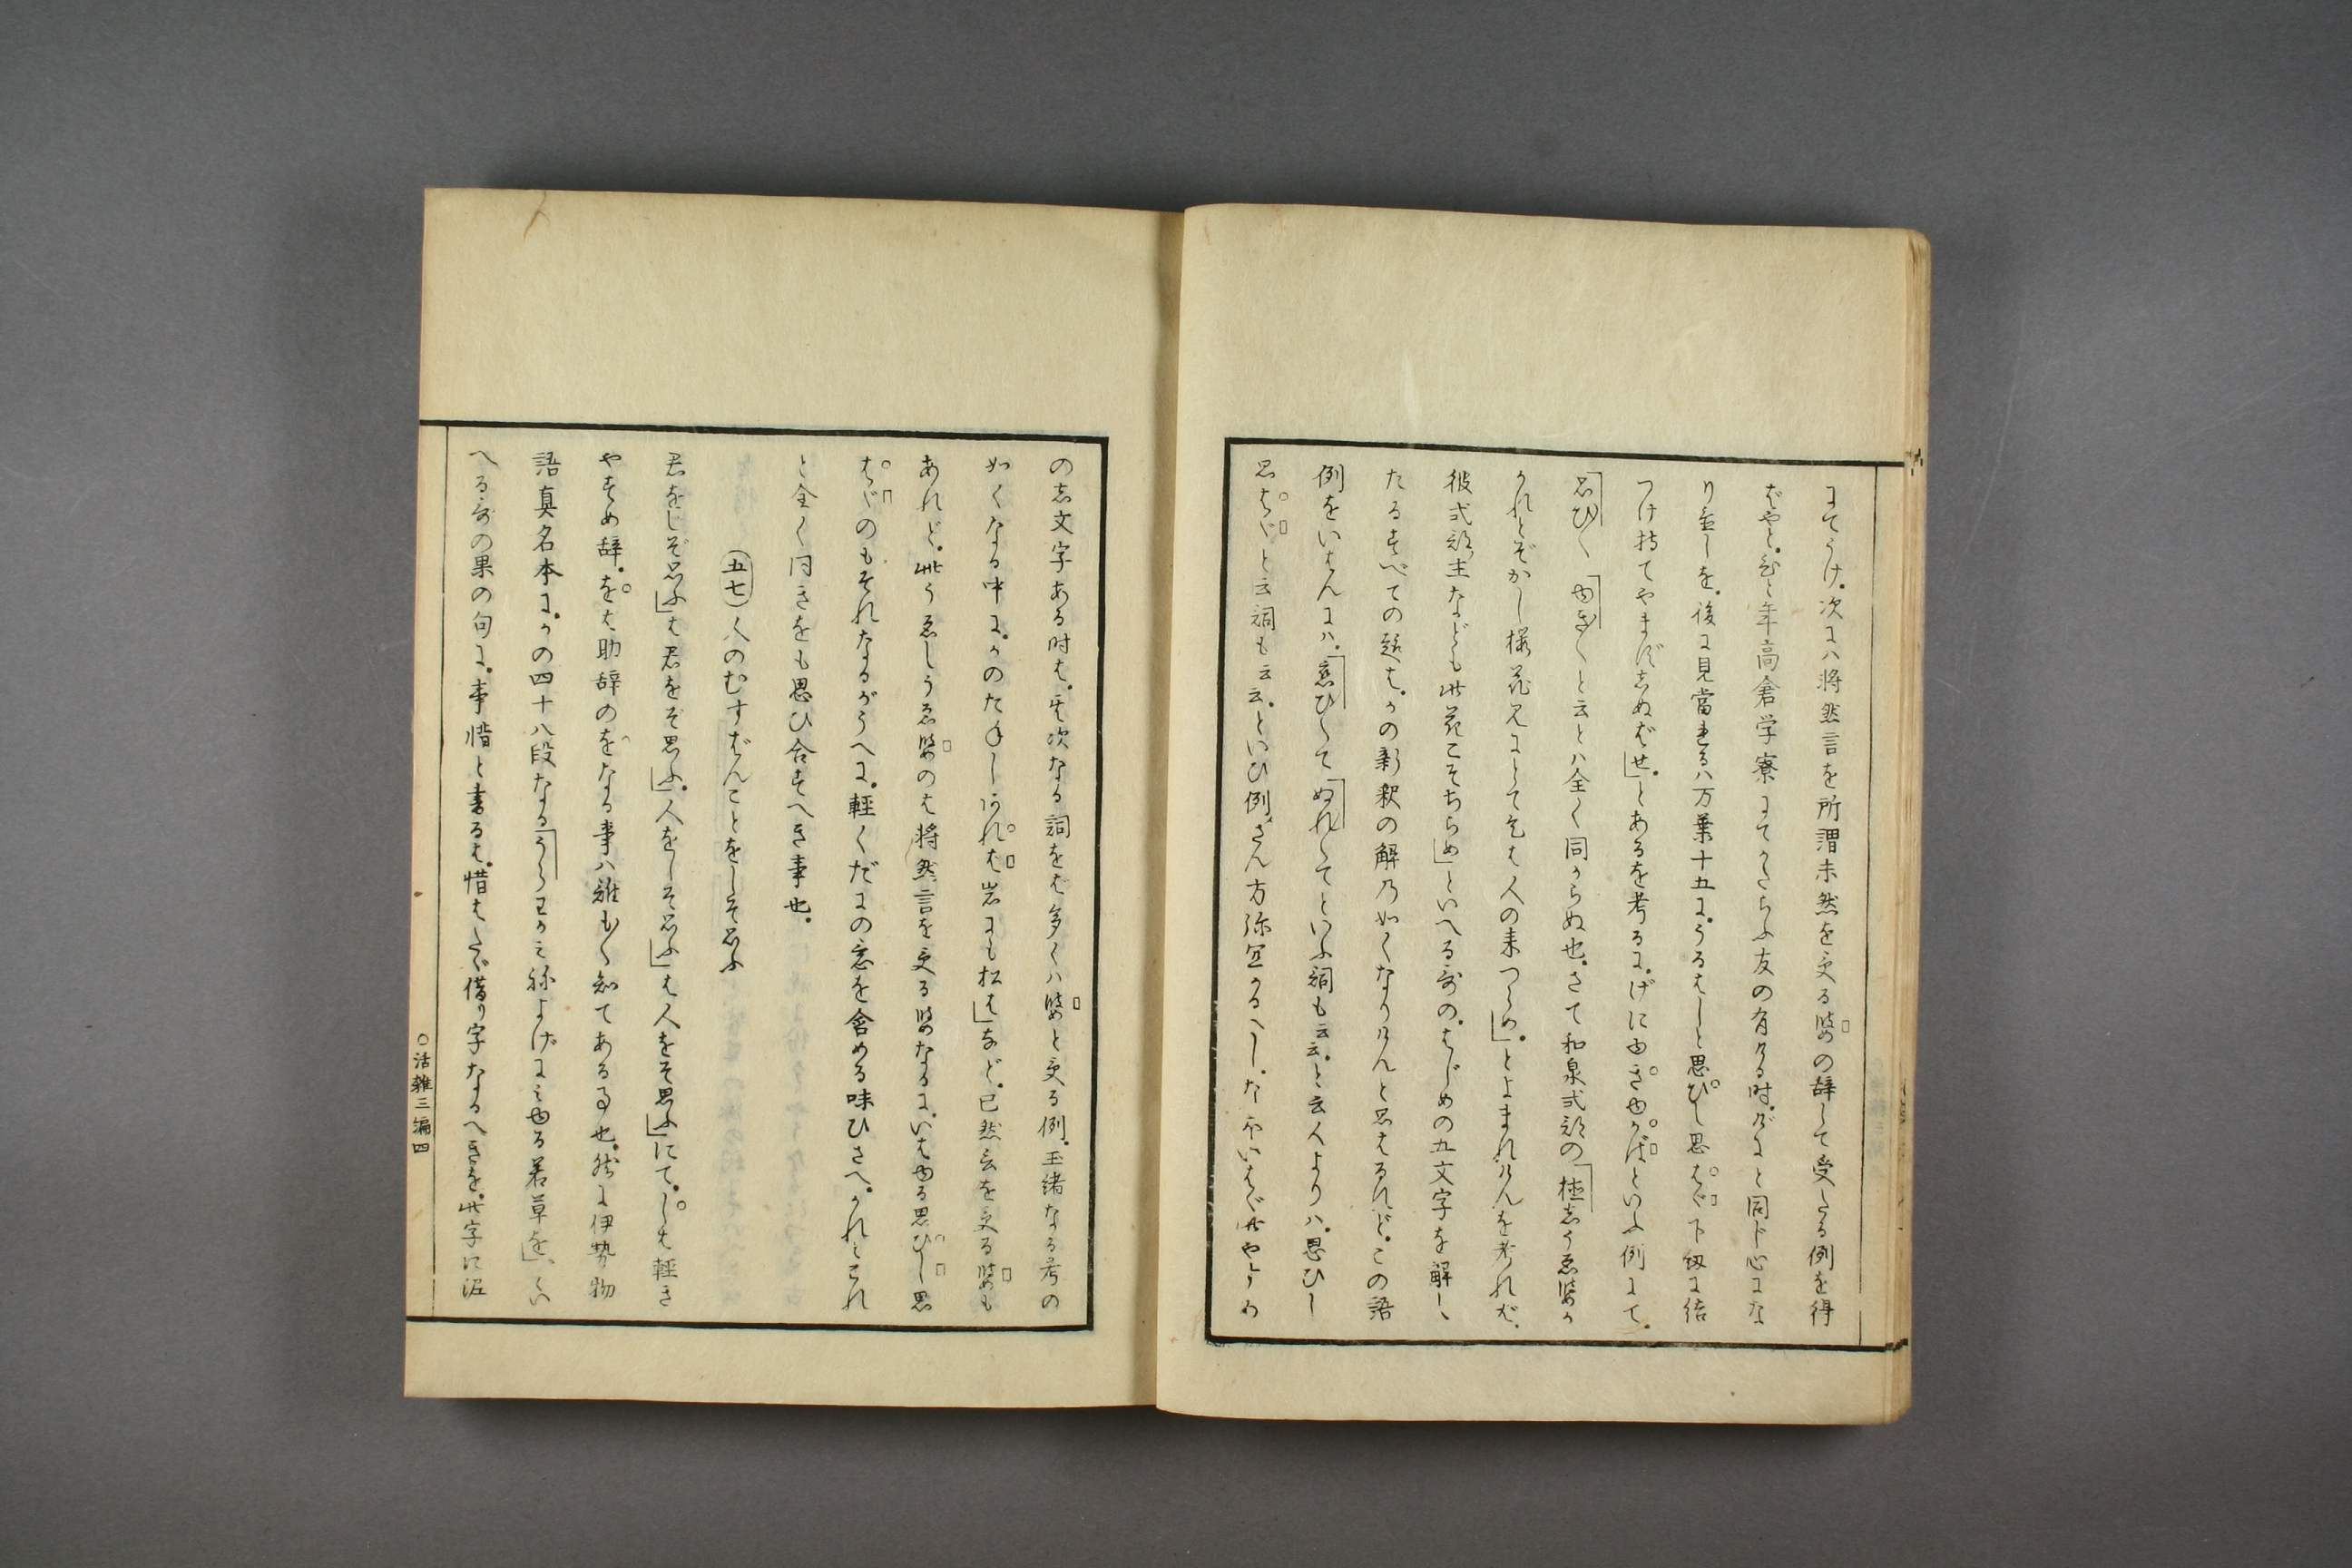 にてうけ。次には将然言を所謂未然を受る婆の辞して受たる例を得
ばやと。ひと年高倉学寮にてかたらふ友の有ける時。げにと同じ心にな
り畳しを。後に見當れるハ万葉十五に。うるはしと思ひし思はゞ下紐に結
つけ持てやまずしぬばせ」とあるを考るに。げにゆきゆかばといふ例にて。
思ひ〱ゆき〱と云とハ全く同からぬ也。さて和泉式部の「植しうゑばか
かれとぞかし桜花見にとて
彼式部主なども此花こそちらめ」といへる歌の。はじめの五文字を解し
たるすべての趣は。かの新釈の解乃如くなりけんと思はるれど。この語
例をいはんにハ。「恋ひ〱て「ぬれ〱てといふ詞も云云。と云人よりハ。思ひし
思はゞと云詞も云云。といひ例さん方弥宜かるべし。
の志文字ある時は。其次なる詞をば多くハ婆と受る例。玉緒なる考の
如くなる中に。かのたねしあれば岩にも松は」など。已然言を受る婆も
あれど。此うゑしうゑ婆のは将然言を受る婆なるに。いはゆる思ひし思
はゞのもそれなるがうへに。軽くだにの意を含める味ひさへ。かれとこれ
と全く同きをも思ひ合すへき事也。
(五七)人のむすばんことをしぞ思ふ
君をしぞ思ふ」は君をぞ思ふ」。人をしぞ思ふ」は人をぞ思ふ」にて。しは軽き
やすめ辞。をは助辞のをなる事ハ誰も〱知てある事也。然に伊勢物
語真名本に。かの四十八段なる「うらわかみねよげにみゆる若草を」。とい
へる歌の果の句に。事惜と書るは。惜はたゞ借り字なるへきを。此字に泥
○活雑三編四